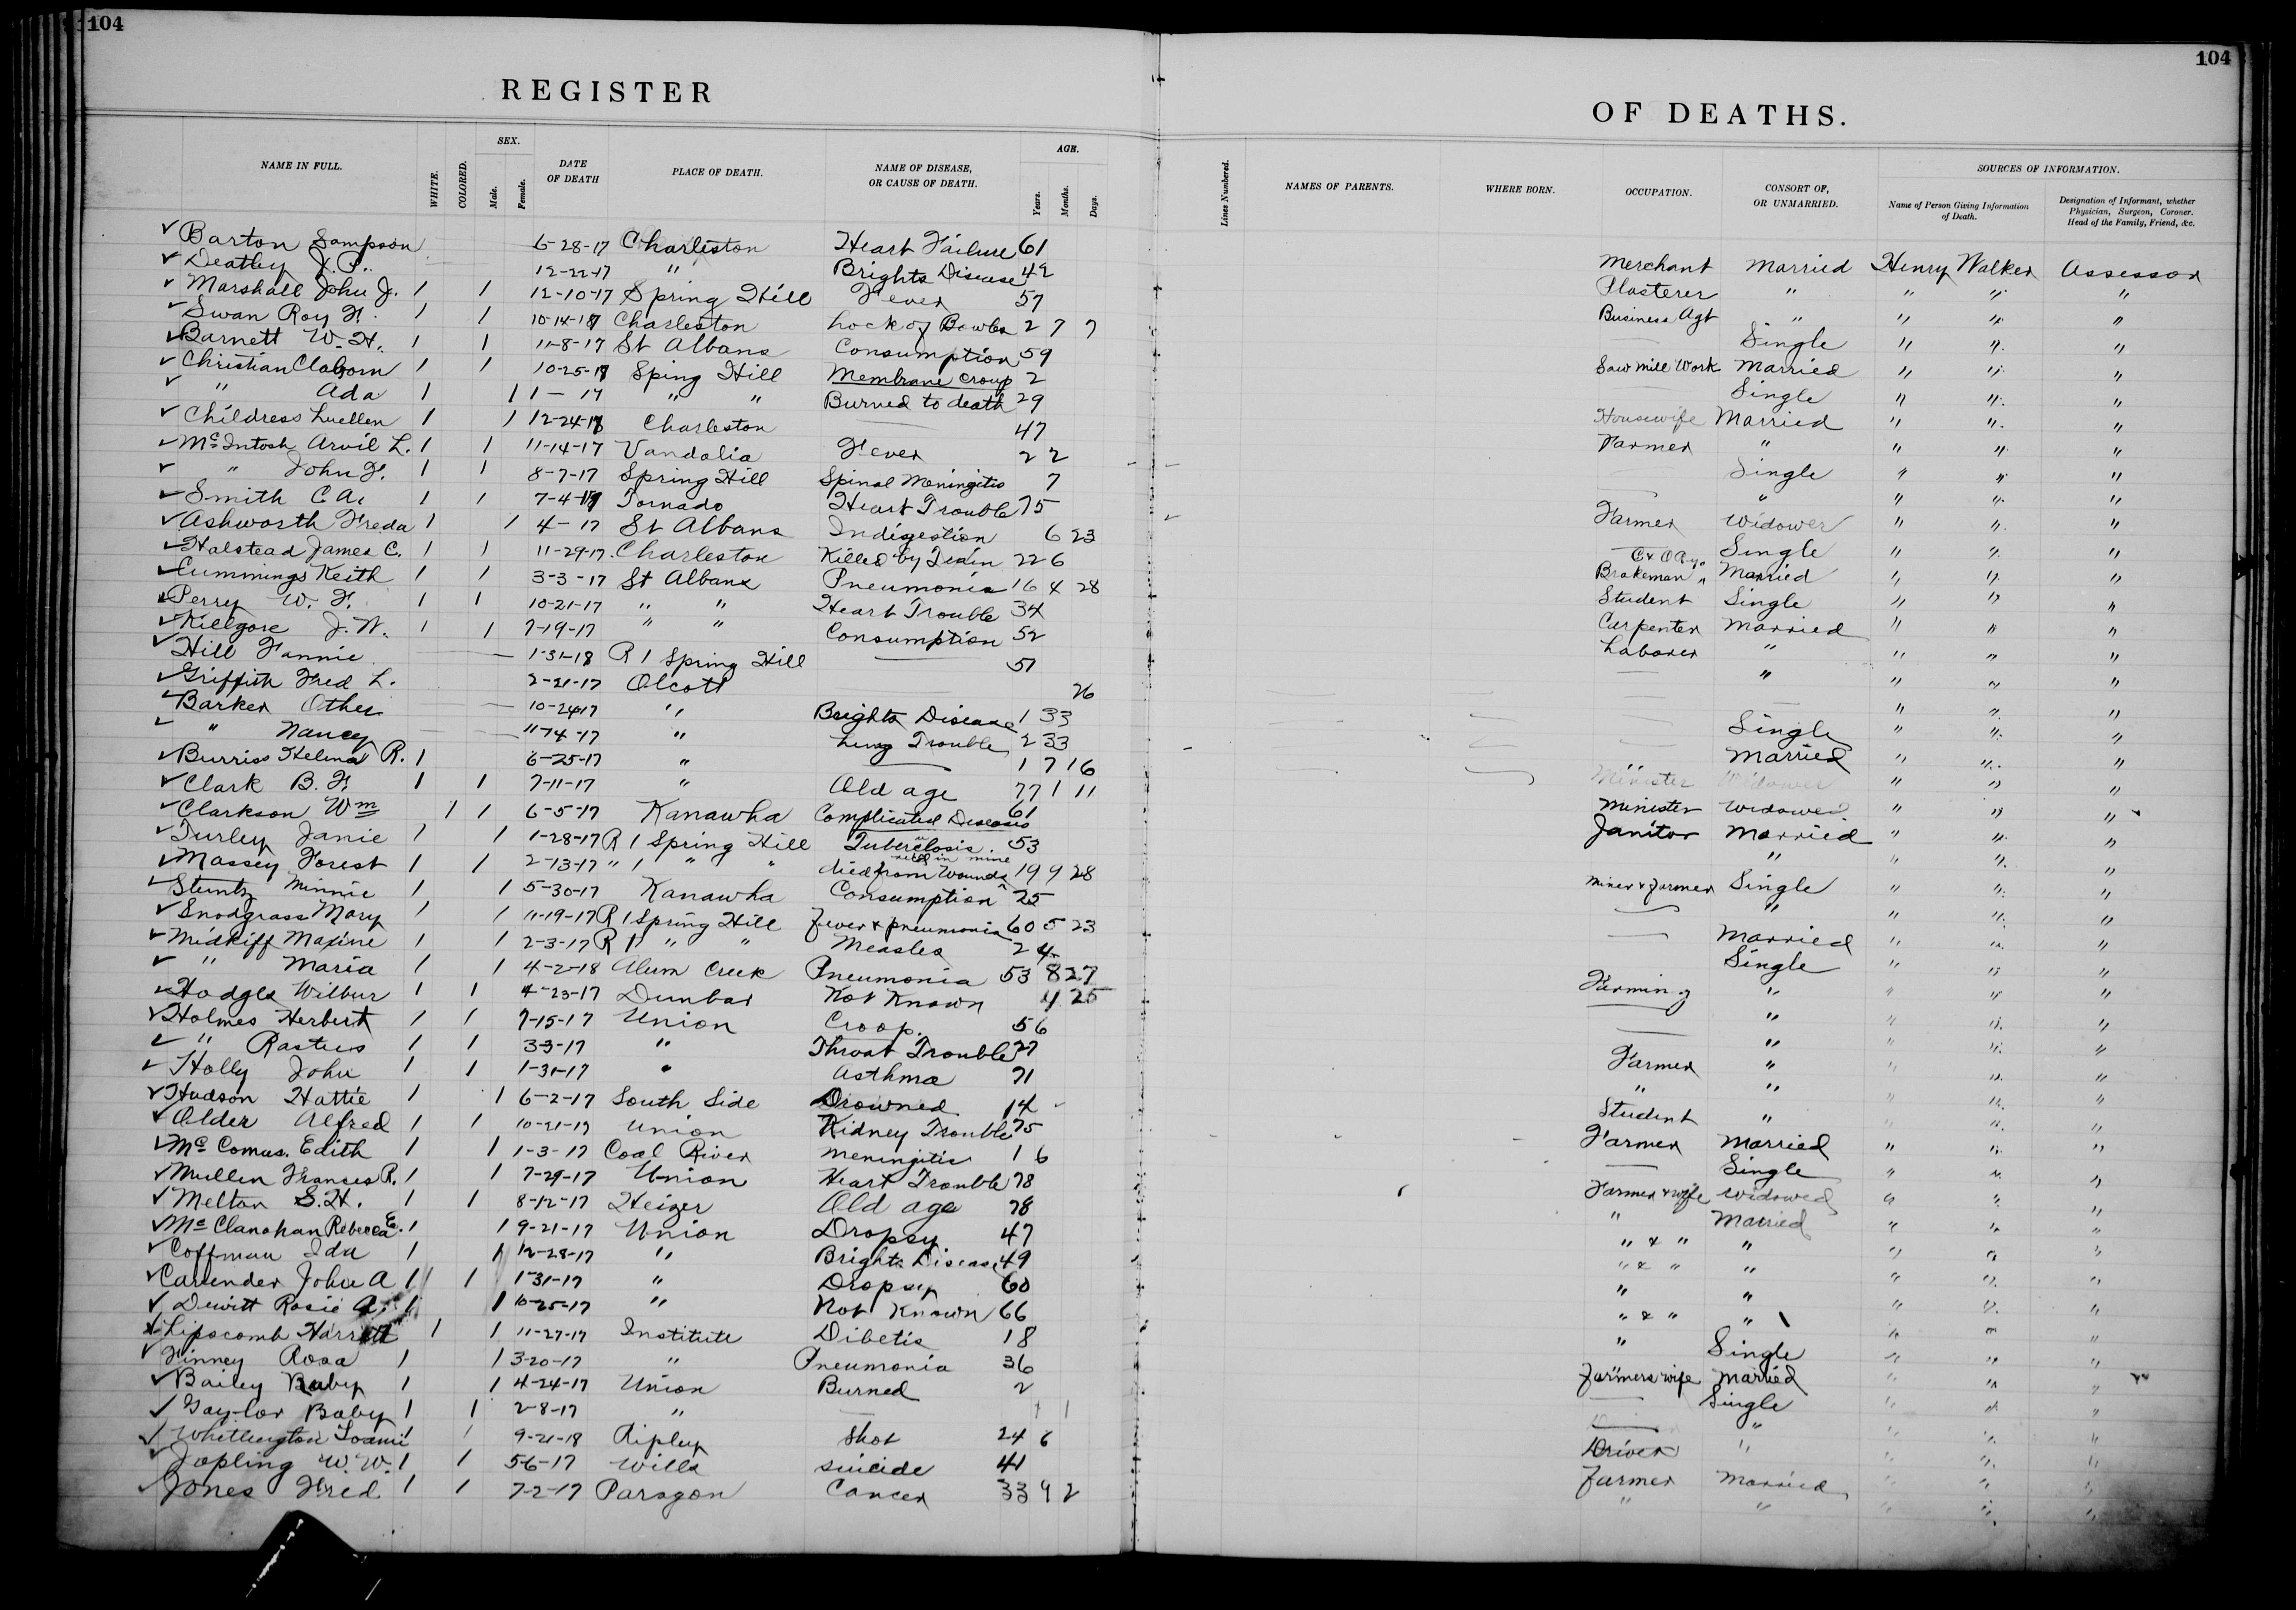 104
104
REGISTER
OF DEATHS.
NAME IN FULL. WHITE. COLORED. SEX. Male. Female. DATE OF DEATH PLACE OF DEATH. NAME OF DISEASE, OR CAUSE OF DEATH. AGE. Years. Months. Days.
Lines Numbered. NAMES OF PARENTS. WHERE BORN. OCCUPATION. CONSORT OF, OR UNMARRIED. SOURCES OF INFORMATION. Name of Person Giving Information of Death. Designation of Informant, whether Physician, Surgeon, Coroner. Head of the Family, Friend, &c.
Barton Sampson 6-28-17 Charleston Heart Failure 61
Deatley J. P. 12-22-17 " Brights Disease 42
Marshall John J. 1 1 12-10-17 Spring Hill Fever 57
Swan Roy F. 1 1 10-14-17 Charleston Lock of Bowles 2 7 7
Barnett W. H. 1 1 11-8-17 St Albans Consumption 59
Christian Claborn 1 1 10-25-17 Sping Hill Membrane Croup 2
" Ada 1 1 1 - 17 " " Burned to death 29
Childress Luellen 1 1 12-24-17 Charleston 47
McIntosh Arvil L. 1 1 11-14-17 Vandalia Fever 2 2
" John F. 1 1 8-7-17 Spring Hill Spinal Meningitis 7
Smith C A. 1 1 7-4-17 Tornado Heart Trouble 75
Ashworth Freda 1 1 4- 17 St Albans Indigestion 6 23
Halstead James C. 1 1 11-29-17 Charleston Killed by Train 22 6
Cummings Keith 1 1 3-3-17 St Albans Pneumonia 16 4 28
Perry W. F. 1 1 10-21-17 " " Heart Trouble 34
Killgore J. W. 1 1 7-19-17 " " Consumption 52
Hill Fannie 1-31-18 R 1 Spring Hill 51
Griffith Fred L. 2-21-17 Olcott 26
Barker Other 10-24-17 " Brights Disease 1 33
" Nancy 11-14-17 " Lung Trouble 2 33
Burriss Helena R. 1 6-25-17 " 1 7 16
Clark B. F. 1 1 7-11-17 " Old age 77 1 11
Clarkson Wm 1 1 6-5-17 Kanawha Complicated Diseases 61
Turley Janie 1 1 1-28-17 R 1 Spring Hill Tuberclosis. 53
Massey Forest 1 1 2-13-17 " 1 " " died from Wounds in mine 19 9 28
Stuntz Minnie 1 1 5-30-17 Kanawha Consumption 25
Snodgrass Mary 1 1 11-19-17 R 1 Spring Hill Fever & pneumonia 60 5 23
Midkiff Maxine 1 1 2-3-17 R 1 " " Measles 2 4
" Maria 1 1 4-2-18 Alum Creek Pneumonia 53 8 27
Hodges Wilbur 1 1 4-23-17 Dunbar Not Known 4 25
Holmes Herbert 1 1 7-15-17 Union Croop. 56
" Rastus 1 1 3-3-17 " Throat Trouble 27
Holly John 1 1 1-31-17 " Asthma 71
Hudson Hattie 1 1 6-2-17 South Side Drowned 14
Older Alfred 1 1 10-21-17 Union Kidney Trouble 75
McComas. Edith 1 1 1-3-17 Coal River Meningitis 1 6
Mullen Frances R. 1 1 7-29-17 Union Heart Trouble 78
Melton S. H. 1 1 8-12-17 Heizer Old age 78
McClanahan Rebecca E. 1 1 9-21-17 Union Dropsy 47
Coffman Ida 1 1 12-28-17 " Brights Disease 49
Cavender John A 1 1 1-31-17 " Dropsy 60
Dewitt Rosie A. 1 1 10-25-17 " Not Known 66
Lipscomb Harriett 1 1 11-27-17 Institute Dibetis 18
Finney Rosa 1 1 3-20-17 " Pneumonia 36
Bailey Ruby 1 1 4-24-17 Union Burned 2
Gaylor Baby 1 1 2-8-17 " 1 1
Whittington 1 1 9-21-18 Ripley Shot 24 6
Jopling W. W. 1 1 5-6-17 Wills suicide 41
Jones Fred 1 1 7-2-17 Paragon Cancer 33 9 2
Merchant Married Henry Walker Assessor
Plasterer " " " "
Business Agt " " " "
Single " " "
Saw mill Work Married " " "
Single " " "
Housewife Married " " "
Farmer " " " "
Single " " "
" " " "
Farmer Widower " " "
Single " " "
C & O Ry.
Brakeman Married " " "
Student Single " " "
Carpenter Married " " "
Laborer " " " "
" " " "
" " "
Single " " "
Married " " "
Minister Widower " " "
Minister Widowed " " "
Janitor Married " " "
" " " "
Miner & Farmer Single " " "
" " " "
Married " " "
Single " " "
Farming " " " "
" " " "
" " " "
Farmer " " " "
" " " " "
Student " " " "
Farmer Married " " "
Single " " "
Farmer & Wife Widowed " " "
" Married " " "
" & " " " " "
" & " " " " "
" " " " "
" & " " " " "
" Single " " "
Farmers Wife Married " " "
Single " " "
" " " "
Driver " " " "
Farmer Married " " "
" " " " "